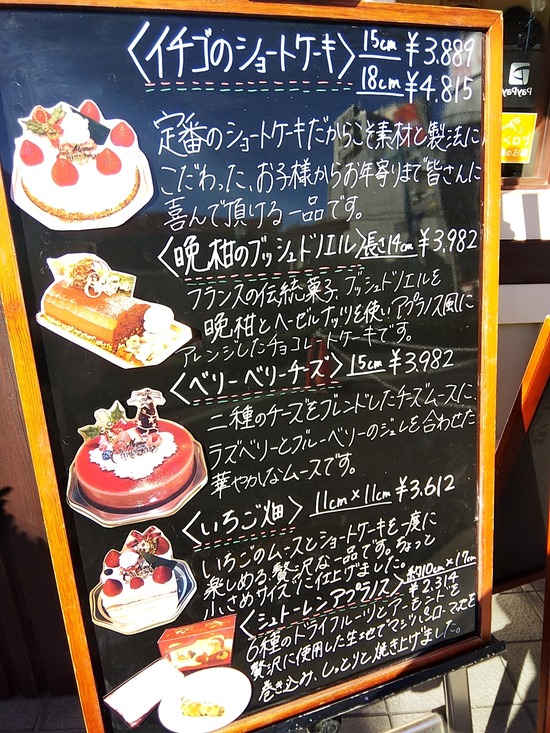 〈イチゴのショートケーキ〉15cm ¥3.889
18cm ¥4.815
定番のショートケーキだからこそ素材と製法に
こだわった、お子様からお年寄りまで皆さんに
喜んで頂ける一品です。
〈晩柑のブッシュドノエル〉長さ14cm ¥3,982
フランスの伝統菓子、ブッシュドノエルを
晩柑とヘーゼルナッツを使いアプラノス風に
アレンジしたチョコレートケーキです。
〈ベリーベリーチーズ〉15cm ¥3.982
二種のチーズをブレンドしたチーズムースに、
ラズベリーとブルーベリーのジュレを合わせた
華やかなムースです。
〈いちご畑〉11cm×11cm ¥3.612
いちごのムースとショートケーキを一度に
楽しめる、贅沢な一品です。ちょっと
小さめサイズで仕上げました。
〈シュトーレンアプラノス〉約10cm×17cm
¥2.314
6種のドライフルーツとアーモンドを
贅沢に使用した生地でマジパンローマセを
巻き込み、しっとりと焼き上げました。
PayPay